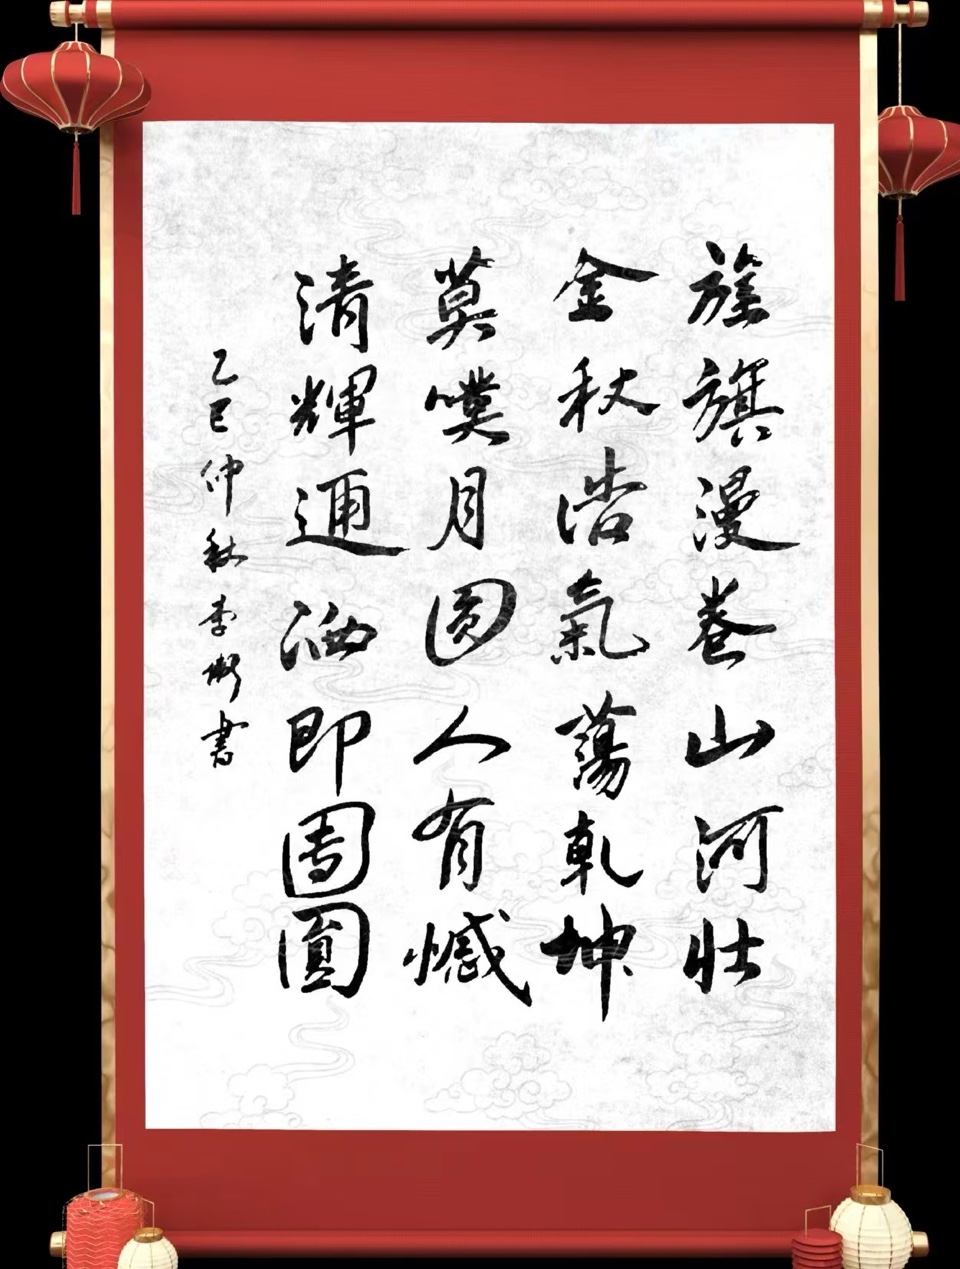 旌旗漫卷山河壮
金秋浩氣蕩乾坤
莫嘆月圆人有憾
清輝遍洒即團圓
乙巳仲秋李书